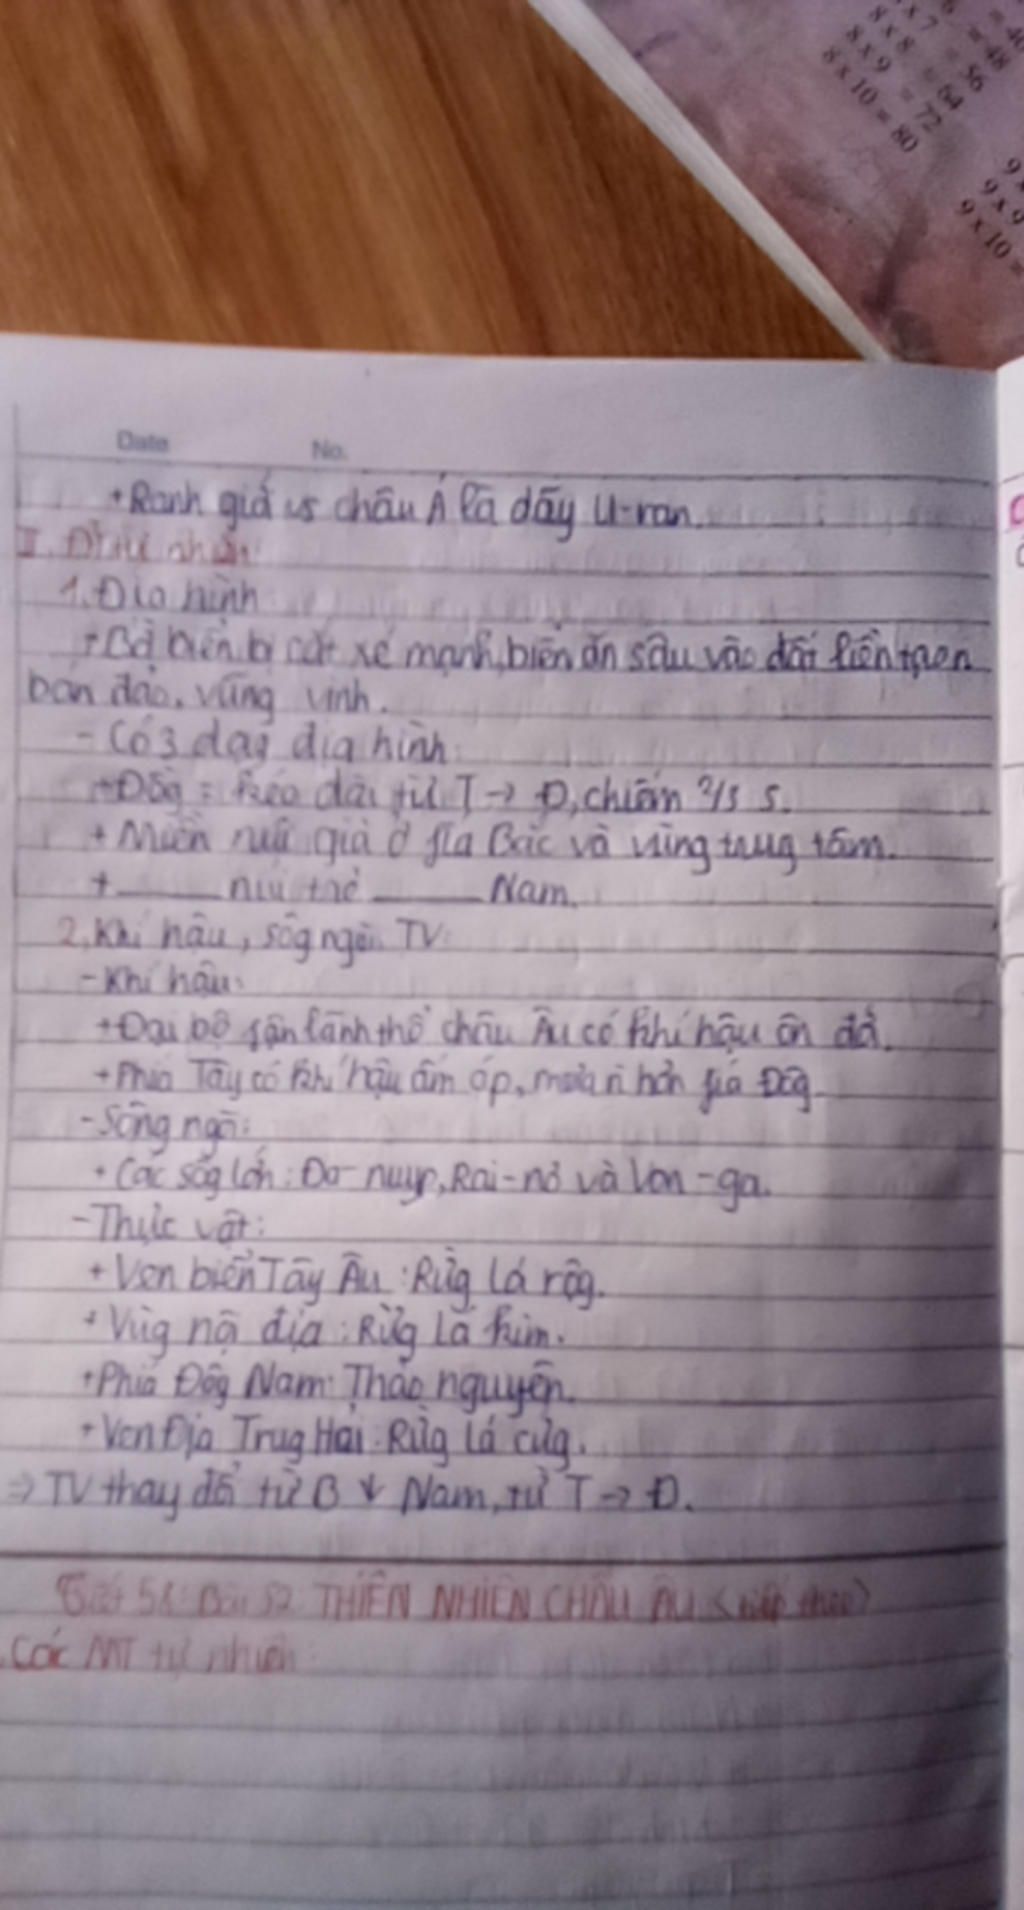 x 7 = 56
8 x 8 = 64
8 x 9 = 72
8 x 10 = 80
= 48
9 x 9
9 x 10 =
Date No.
+ Ranh giả vs châu Á là dãy U-ran.
II.
1. Địa hình
+ Bờ biển bị cắt xẻ mạnh, biển ăn sâu vào đất liền tạo
bán đảo, vũng vịnh.
- Có 3 dạg địa hình:
+ Đồg: kéo dài từ T → Đ, chiếm 2/3 S.
+ Miền núi già ở fía Bắc và vùng trug tâm.
+ ____ núi trẻ ____ Nam.
2. Khí hậu, sôg ngòi, TV:
- Khí hậu:
+ Đại bộ fận lãnh thổ châu Âu có khí hậu ôn đới.
+ Phía Tây có khí hậu ấm áp, mưa n hơn fía Đôg.
- Sông ngòi:
+ Các sôg lớn: Đa-nuyp, Rai-nơ và Von-ga.
- Thực vật:
+ Ven biển Tây Âu: Rừg lá rộg.
+ Vùg nội địa: Rừg lá kim.
+ Phía Đôg Nam: Thảo nguyên.
+ Ven Địa Trug Hải: Rừg lá cứg.
⇒ TV thay đổi từ B ↓ Nam, từ T → Đ.
52: THIÊN NHIÊN CHÂU ÂU (tiếp theo)
Các MT tự nhiên: